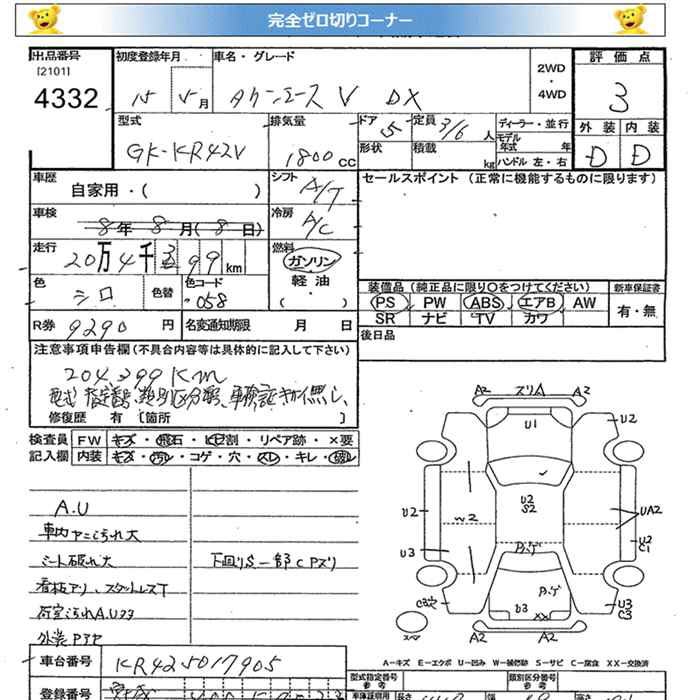 完全ゼロ切りコーナー
出品番号 初度登録年月 車名・グレード 2WD ・ 4WD 評価点
[2101]
4332 15 5月 タウンエース V DX 3
型式 排気量 ドア 定員 ディーラー・並行 外装 内装
GK-KR42V 1800cc 5 3/6人 モデル年式 年 D D
形状 積載 kg ハンドル 左・右
車歴 シフト セールスポイント (正常に機能するものに限ります)
自家用・( ) A/T
車検 8年 8月(8日) 冷房 A/C
走行 20万4千399km 燃料 ガソリン
色 シロ 色替 色コード 058 軽油 ・( )
装備品(純正品に限り○をつけてください) 新車保証書
PS PW ABS エアB AW 有・無
SR ナビ TV カワ
R券 9290円 名変通知期限 月 日 後日品
注意事項申告欄(不具合内容等は具体的に記入して下さい)
204,399Km
修復歴 有 [箇所 ]
検査員 FW キズ・飛石・ヒビ割・リペア跡・×要
記入欄 内装 キズ・汚レ・コゲ・穴・スレ・キレ・破レ
A.U
車内ヤニ汚れ大
シート破れ大 下回りS 一部Cアリ
外装
A2 スリA A2
U1 U2
U2 S2
U2 W2 UA2
U3 U2 C1
U3 XX U3 C3
スペア A2 A2
A-キズ E-エクボ U-凹み W-補修跡 S-サビ C-腐食 XX-交換済
車台番号 KR42-5017905 型式指定番号 類別区分番号
登録番号